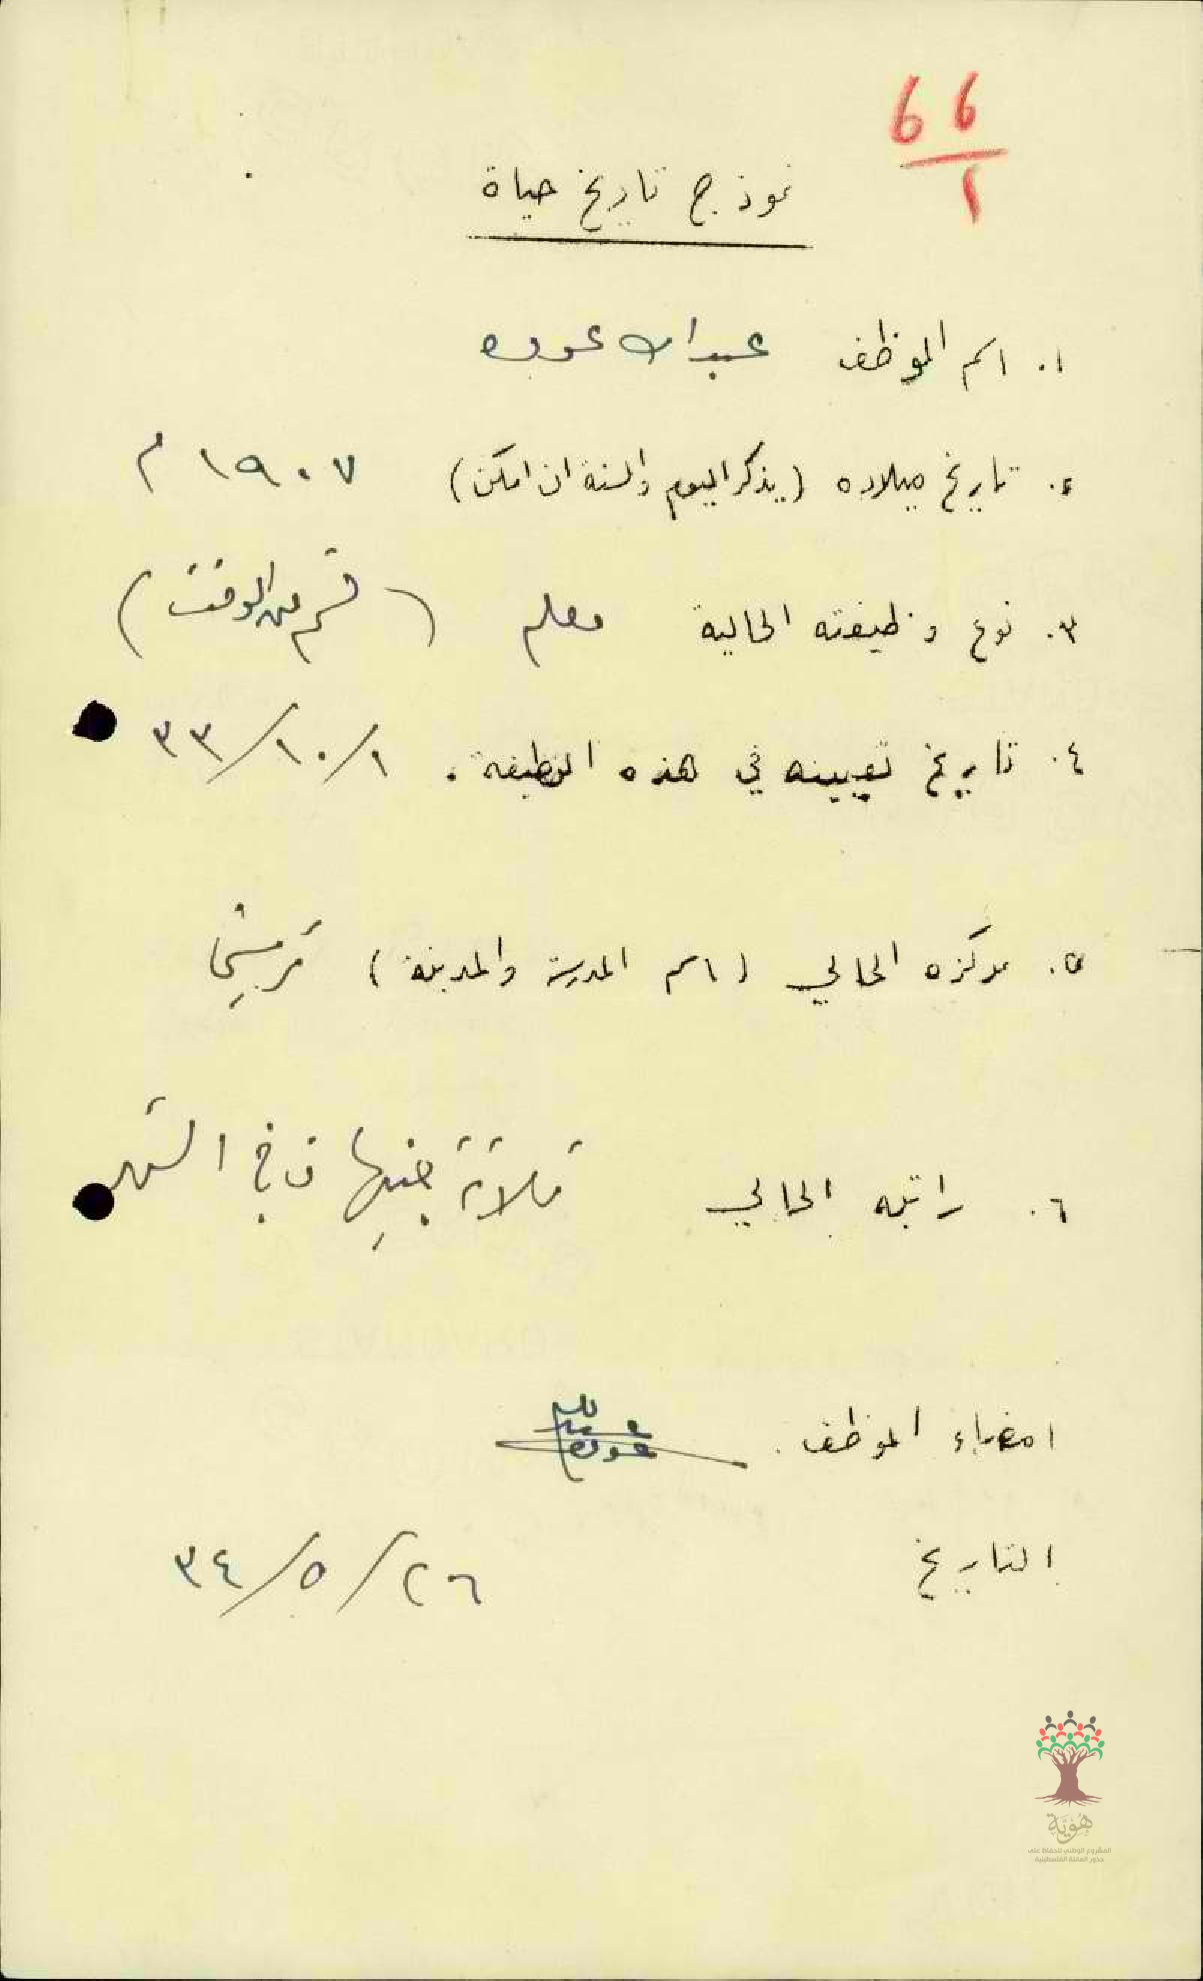 66
١
نموذج تاريخ حياة
١. اسم الموظف عبد الله عوده
٢. تاريخ ميلاده (يذكر اليوم والسنة ان امكن) ١٩٠٧ م
٣. نوع وظيفته الحالية معلم (قسم من الوقت)
٤. تاريخ تعيينه في هذه الوظيفة. ١/١٠/٣٣
٥. مركزه الحالي (اسم المدرسة والمدينة) ترشيحا
٦. راتبه الحالي ثلاثة جنيهات في الشهر
امضاء الموظف. عبد الله عوده
التاريخ ٢٦/٥/٣٤
هُوِيَّة
المشروع الوطني للحفاظ على
جذور العائلة الفلسطينية